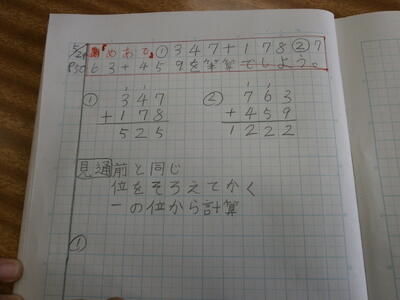 5/24 『めあて』①347+178②7
P50 63+459を筆算でしよう。
① 347
+178
525
② 763
+459
1222
見通 前と同じ
位をそろえてかく
一の位から計算
①